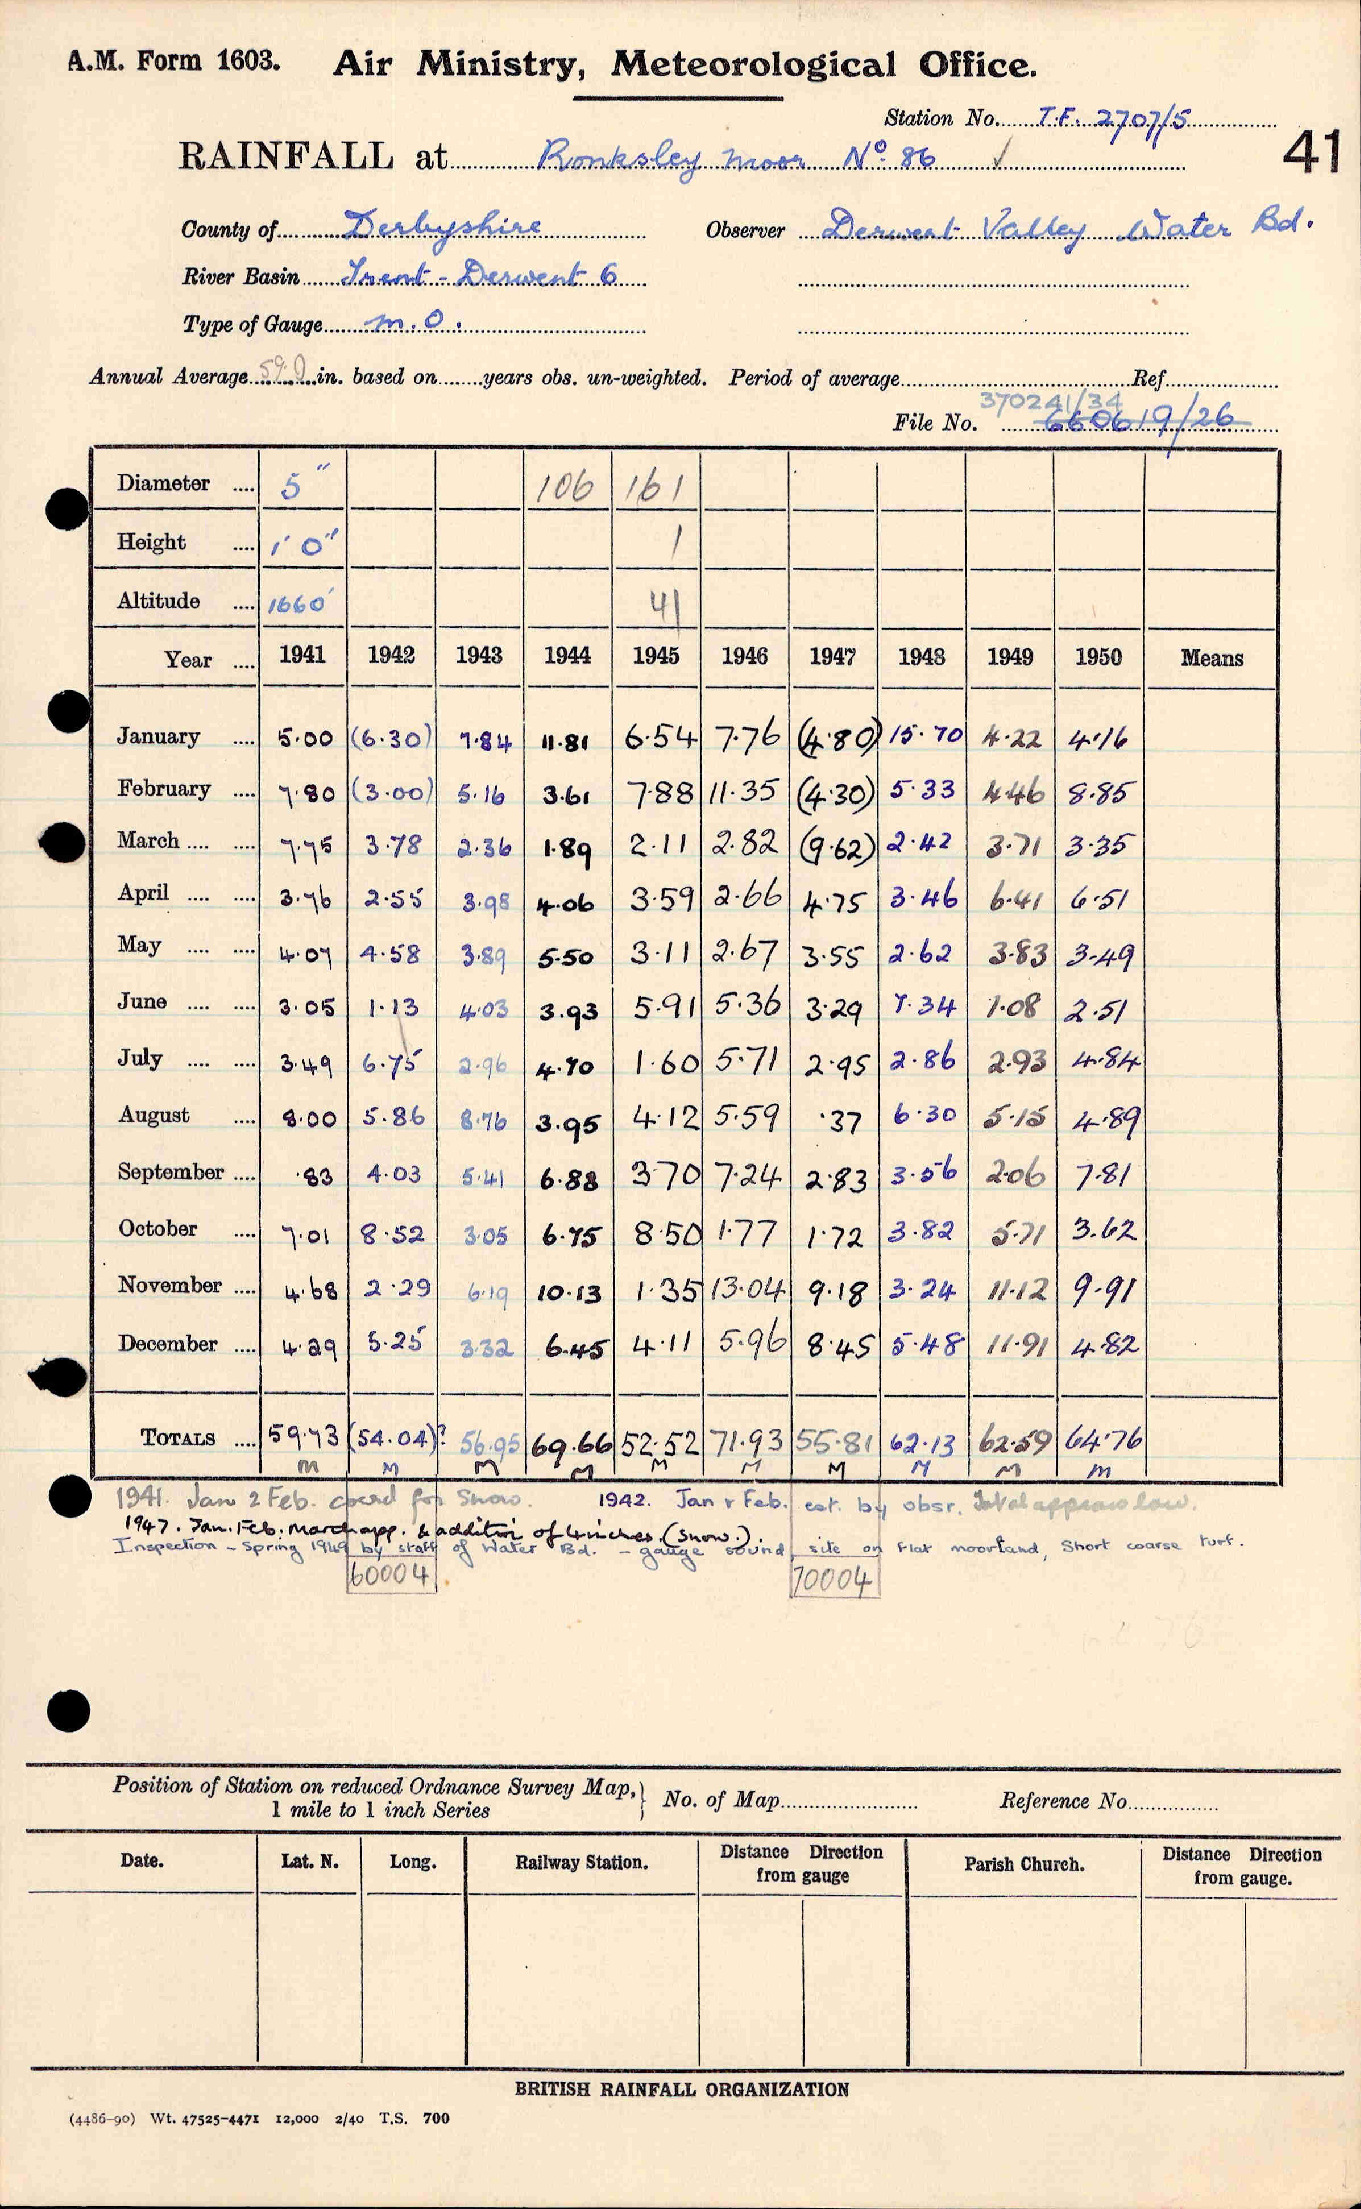 A.M. Form 1603. Air Ministry, Meteorological Office.
Station No. T.F. 2707/5
RAINFALL at Ronksley Moor No. 86 ✓
41
County of Derbyshire Observer Derwent Valley Water Bd.
River Basin Trent - Derwent 6
Type of Gauge m.o.
Annual Average 59.0 in. based on years obs. un-weighted. Period of average Ref.
370241/34
File No. 660619/26
Diameter .... 5" 106 161
Height .... 1' 0" 1
Altitude .... 1660' 41
Year .... 1941 1942 1943 1944 1945 1946 1947 1948 1949 1950 Means
January .... 5.00 (6.30) 7.84 11.81 6.54 7.76 (4.80) 15.70 4.22 4.16
February .... 7.80 (3.00) 5.16 3.61 7.88 11.35 (4.30) 5.33 4.46 8.85
March .... .... 7.75 3.78 2.36 1.89 2.11 2.82 (9.62) 2.42 3.71 3.35
April .... .... 3.76 2.55 3.98 4.06 3.59 2.66 4.75 3.46 6.41 6.51
May .... .... 4.07 4.58 3.89 5.50 3.11 2.67 3.55 2.62 3.83 3.49
June .... .... 3.05 1.13 4.03 3.93 5.91 5.36 3.29 7.34 1.08 2.51
July .... .... 3.49 6.75 2.96 4.70 1.60 5.71 2.95 2.86 2.93 4.84
August .... 8.00 5.86 8.76 3.95 4.12 5.59 .37 6.30 5.15 4.89
September .... .83 4.03 5.41 6.88 3.70 7.24 2.83 3.56 2.06 7.81
October .... 7.01 8.52 3.05 6.75 8.50 1.77 1.72 3.82 5.71 3.62
November .... 4.68 2.29 6.19 10.13 1.35 13.04 9.18 3.24 11.12 9.91
December .... 4.29 5.25 3.32 6.45 4.11 5.96 8.45 5.48 11.91 4.82
TOTALS .... 59.73 (54.04)? 56.95 69.66 52.52 71.93 55.81 62.13 62.59 64.76
M M M M M M M M M M
1941. Jan & Feb. for Snow. 1942. Jan & Feb. est. by obsr. Total appears low.
1947. Jan. Feb. March app. & addition of 4 inches (Snow.).
Inspection - Spring 1949 by staff of Water Bd. - gauge sound, site on flat moorland, short coarse turf.
60004 70004
Position of Station on reduced Ordnance Survey Map, } No. of Map Reference No.
1 mile to 1 inch Series
Date. Lat. N. Long. Railway Station. Distance Direction from gauge Parish Church. Distance Direction from gauge.
BRITISH RAINFALL ORGANIZATION
(4486-90) Wt. 47525-4471 12,000 2/40 T.S. 700